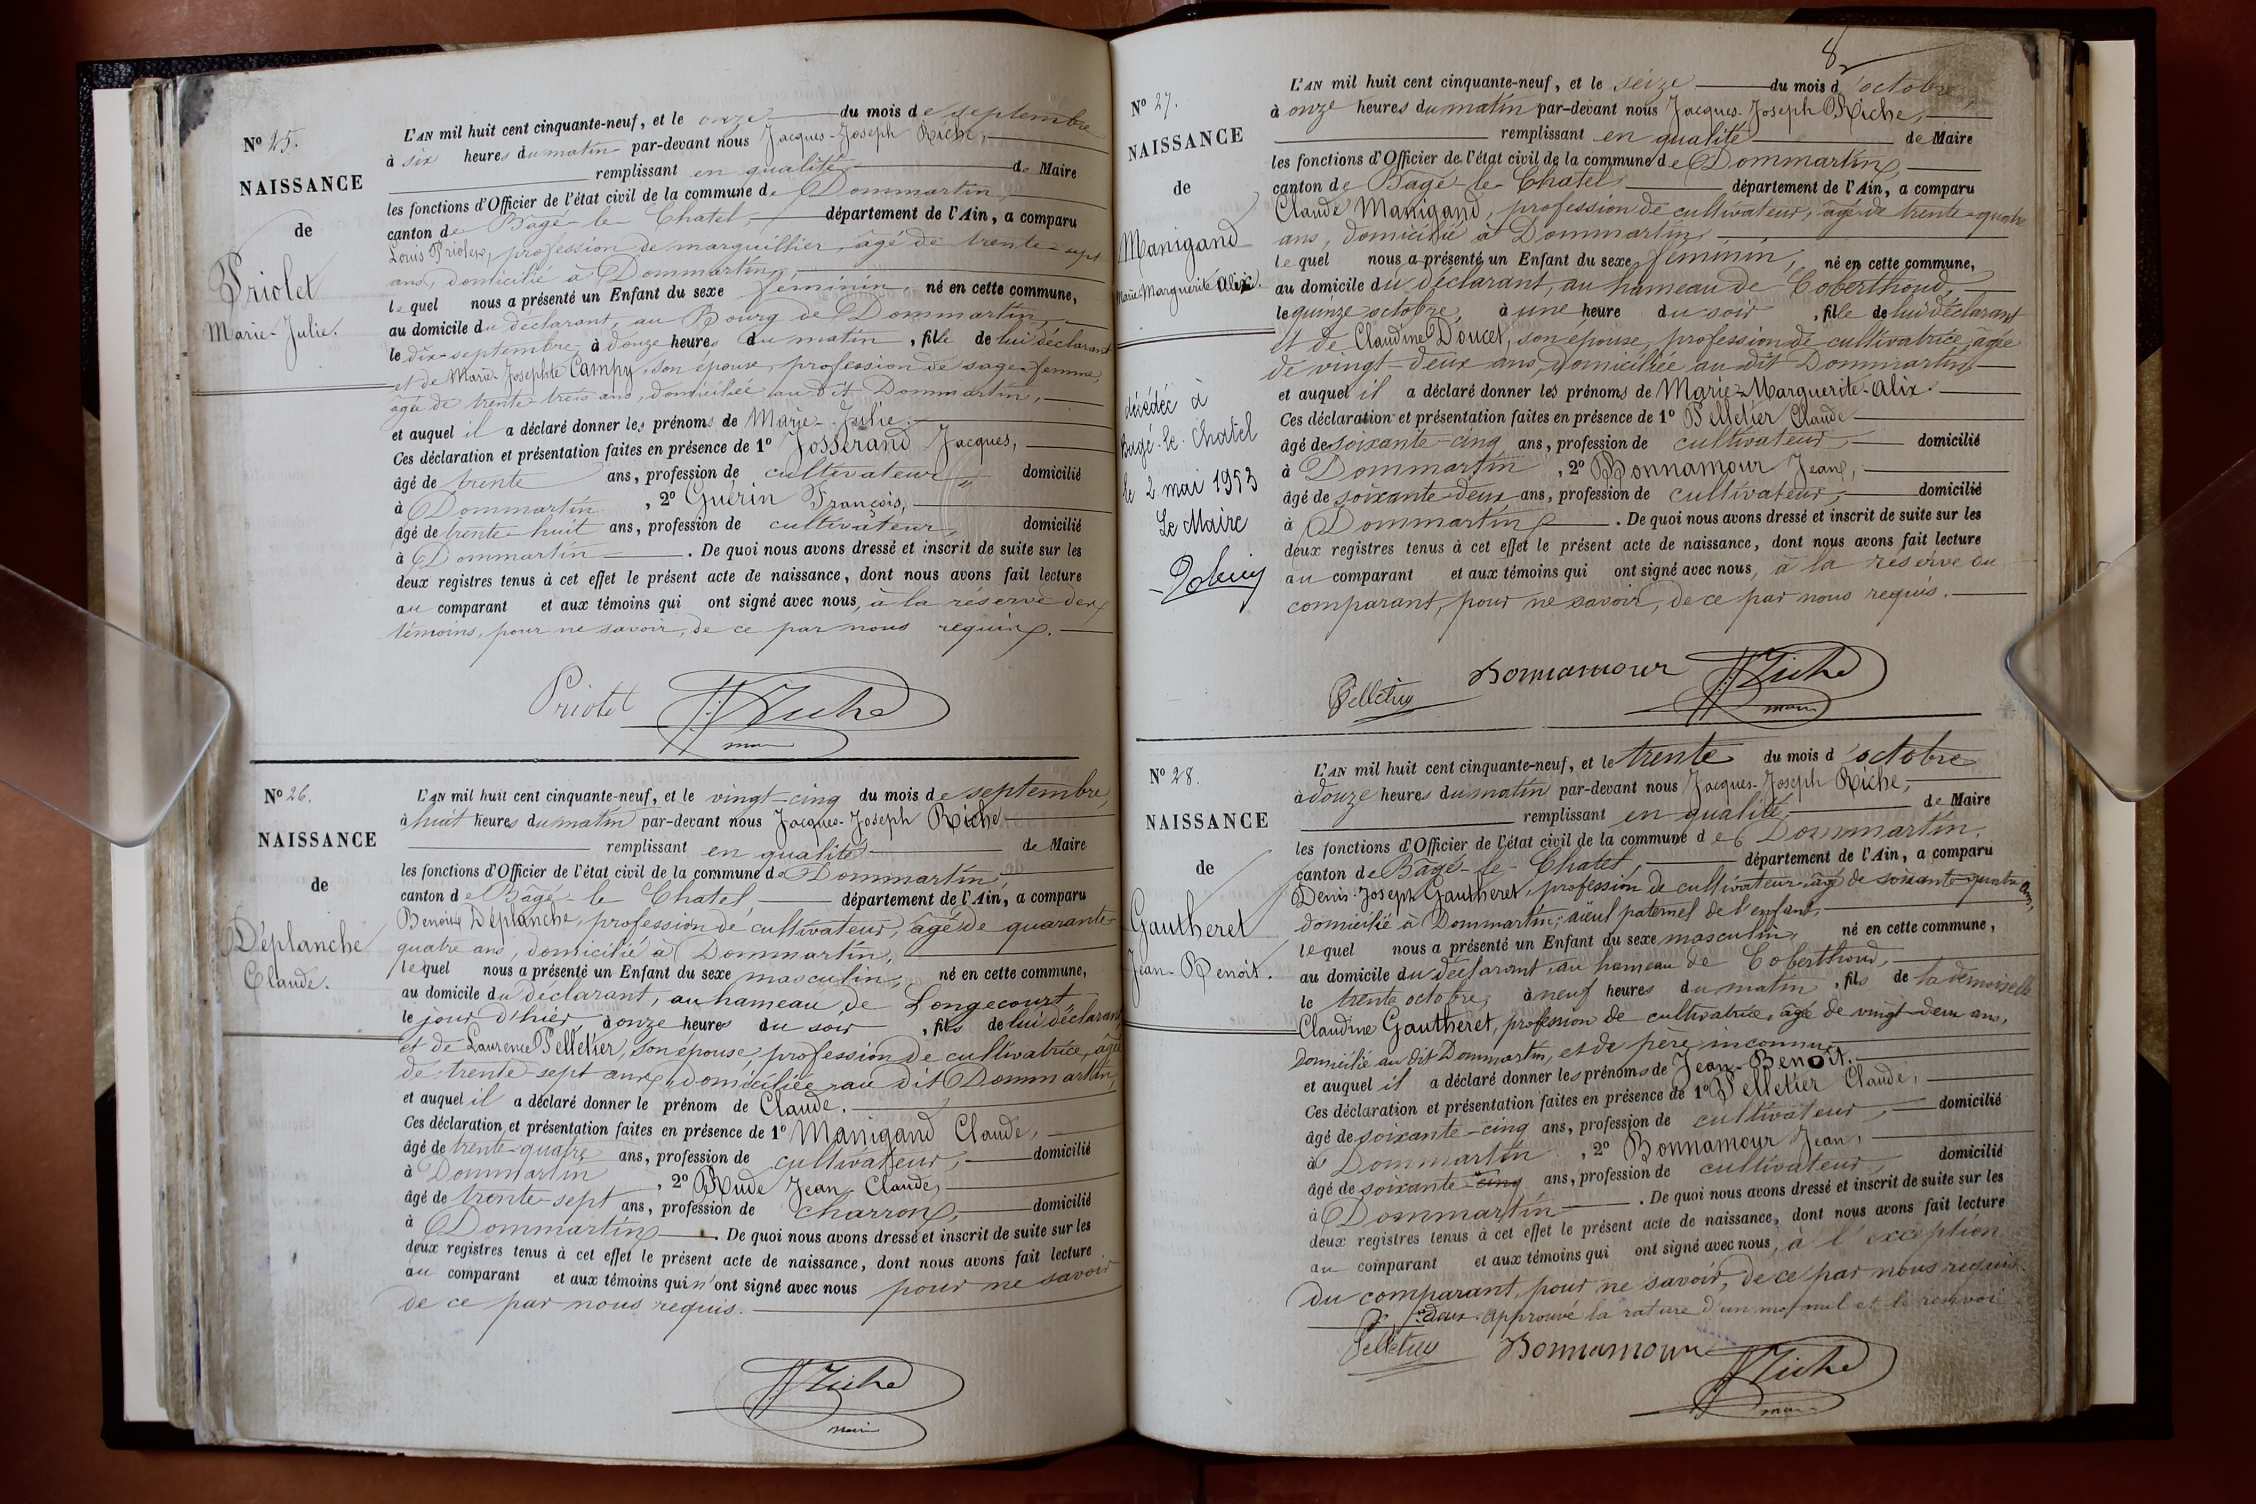 N° 25.
NAISSANCE
de
Priolet
Marie-Julie.
L'AN mil huit cent cinquante-neuf, et le onze du mois de septembre
à six heures du matin par-devant nous Jacques-Joseph Riche,
remplissant en qualité de Maire
les fonctions d'Officier de l'état civil de la commune de Dommartin,
canton de Bâgé-le-Chatel, département de l'Ain, a comparu
Louis Priolet, profession de marguillier, âgé de trente-sept
ans, domicilié à Dommartin,
lequel nous a présenté un Enfant du sexe féminin, né en cette commune,
au domicile du déclarant, au Bourg de Dommartin,
le dix-septembre à douze heures du matin, fille de lui déclarant
et de Marie-Josephte Campy, son épouse, profession de sage-femme,
âgée de trente-trois ans, domiciliée au dit Dommartin,
et auquel il a déclaré donner les prénoms de Marie-Julie.
Ces déclaration et présentation faites en présence de 1° Josserand Jacques,
âgé de trente ans, profession de cultivateur, domicilié
à Dommartin, 2° Guérin François,
âgé de trente-huit ans, profession de cultivateur, domicilié
à Dommartin. De quoi nous avons dressé et inscrit de suite sur les
deux registres tenus à cet effet le présent acte de naissance, dont nous avons fait lecture
au comparant et aux témoins qui ont signé avec nous, à la réserve des
témoins, pour ne savoir, de ce par nous requis.
Priolet JJ Riche
maire
N° 26.
NAISSANCE
de
Déplanche
Claude.
L'AN mil huit cent cinquante-neuf, et le vingt-cinq du mois de septembre,
à huit heures du matin par-devant nous Jacques-Joseph Riche
remplissant en qualité de Maire
les fonctions d'Officier de l'état civil de la commune de Dommartin,
canton de Bâgé-le-Chatel, département de l'Ain, a comparu
Benoit Déplanche, profession de cultivateur, âgé de quarante-
quatre ans, domicilié à Dommartin,
lequel nous a présenté un Enfant du sexe masculin, né en cette commune,
au domicile du déclarant, au hameau de Longecourt
le jour d'hier, à onze heures du soir, fils de lui déclarant
et de Laurence Pelletier, son épouse, profession de cultivatrice, âgée
de trente-sept ans, domiciliée au dit Dommartin,
et auquel il a déclaré donner le prénom de Claude.
Ces déclaration et présentation faites en présence de 1° Manigand Claude,
âgé de trente-quatre ans, profession de cultivateur, domicilié
à Dommartin, 2° Rude Jean Claude,
âgé de trente-sept ans, profession de charron, domicilié
à Dommartin. De quoi nous avons dressé et inscrit de suite sur les
deux registres tenus à cet effet le présent acte de naissance, dont nous avons fait lecture
au comparant et aux témoins qui n'ont signé avec nous pour ne savoir
de ce par nous requis.
JJ Riche
maire
8
N° 27.
NAISSANCE
de
Manigand
Marie Marguerite Alix.
décédée à
Bagé-le-Chatel
le 2 mai 1953
Le Maire
L'AN mil huit cent cinquante-neuf, et le seize du mois d'octobre,
à onze heures du matin par-devant nous Jacques-Joseph Riche,
remplissant en qualité de Maire
les fonctions d'Officier de l'état civil de la commune de Dommartin,
canton de Bagé-le-Chatel, département de l'Ain, a comparu
Claude Manigand, profession de cultivateur, âgé de trente-quatre
ans, domicilié à Dommartin,
lequel nous a présenté un Enfant du sexe féminin, né en cette commune,
au domicile du déclarant, au hameau de Coberthoud,
le quinze octobre, à une heure du soir, fille de lui déclarant
et de Claudine Doucet, son épouse, profession de cultivatrice, âgée
de vingt-deux ans, domiciliée au dit Dommartin,
et auquel il a déclaré donner les prénoms de Marie-Marguerite-Alix.
Ces déclaration et présentation faites en présence de 1° Pelletier Claude
âgé de soixante-cinq ans, profession de cultivateur, domicilié
à Dommartin, 2° Bonnamour Jean,
âgé de soixante-deux ans, profession de cultivateur, domicilié
à Dommartin. De quoi nous avons dressé et inscrit de suite sur les
deux registres tenus à cet effet le présent acte de naissance, dont nous avons fait lecture
au comparant et aux témoins qui ont signé avec nous, à la réserve du
comparant, pour ne savoir, de ce par nous requis.
Pelletier Bonnamour JJ Riche
maire
N° 28.
NAISSANCE
de
Gautheret
Jean-Benoit.
L'AN mil huit cent cinquante-neuf, et le trente du mois d'octobre
à douze heures du matin par-devant nous Jacques-Joseph Riche,
remplissant en qualité de Maire
les fonctions d'Officier de l'état civil de la commune de Dommartin,
canton de Bâgé-le-Chatel, département de l'Ain, a comparu
Denis-Joseph Gautheret, profession de cultivateur, âgé de soixante-quatre ans,
domicilié à Dommartin, aïeul paternel de l'enfant,
lequel nous a présenté un Enfant du sexe masculin, né en cette commune,
au domicile du déclarant, au hameau de Coberthoud,
le trente octobre, à neuf heures du matin, fils de la demoiselle
Claudine Gautheret, profession de cultivatrice, âgé de vingt-deux ans,
domicilié au dit Dommartin, et de père inconnu,
et auquel il a déclaré donner les prénoms de Jean-Benoît.
Ces déclaration et présentation faites en présence de 1° Pelletier Claude,
âgé de soixante-cinq ans, profession de cultivateur, domicilié
à Dommartin, 2° Bonnamour Jean,
âgé de soixante-cinq ans, profession de cultivateur, domicilié
à Dommartin. De quoi nous avons dressé et inscrit de suite sur les
deux registres tenus à cet effet le présent acte de naissance, dont nous avons fait lecture
au comparant et aux témoins qui ont signé avec nous, à l'exception
du comparant, pour ne savoir, de ce par nous requis.
deux. Approuvé la rature d'un mot nul et le renvoi
Pelletier Bonnamour JJ Riche
maire